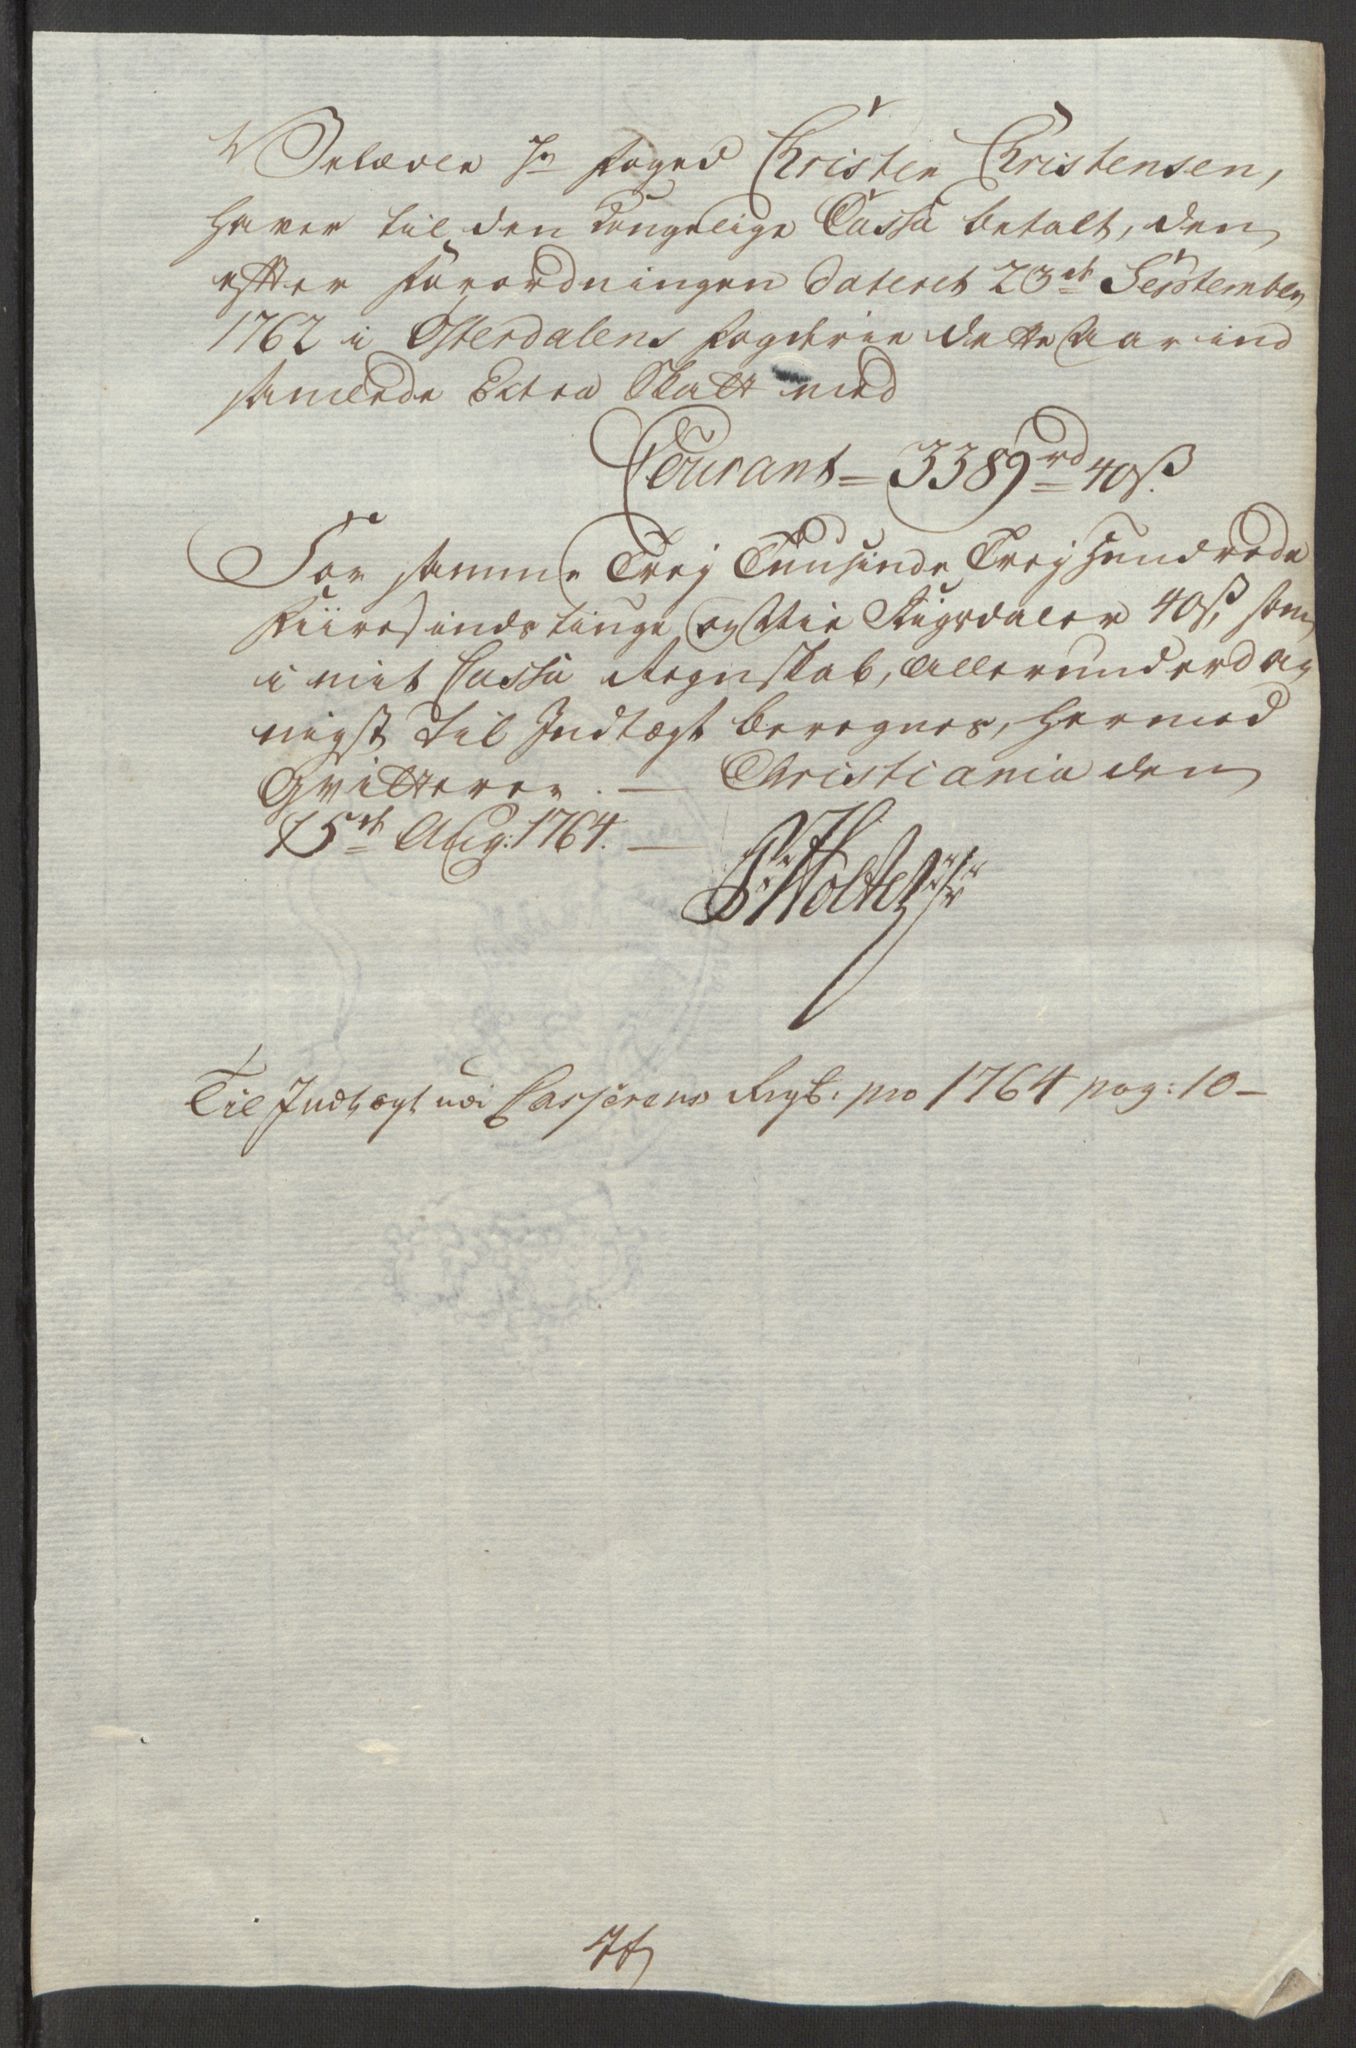 Velædle Hr Foged Christen Christensen,
haver til den Kongelige Cassa betalt, den
efter Forordningen dateret 23de September
1762 i Østerdalens Fogderie dette Aar ind
samlede Extra Skatt med
Courant = 3389 rd 40 ß.
For samme Trej Tuusinde Trej Hundrede
Fiiresindstiuge og Nie Rigsdaler 40 ß, som
i mit Cassa Regnskab, Allerunderdan
nigst til Indtægt beregnes, hermed
Qvitterer. — Christiania den
15de Aug: 1764. —
P: Holter
Til Indtægt udi Casserens Regsk. pro 1764 pag: 10 —